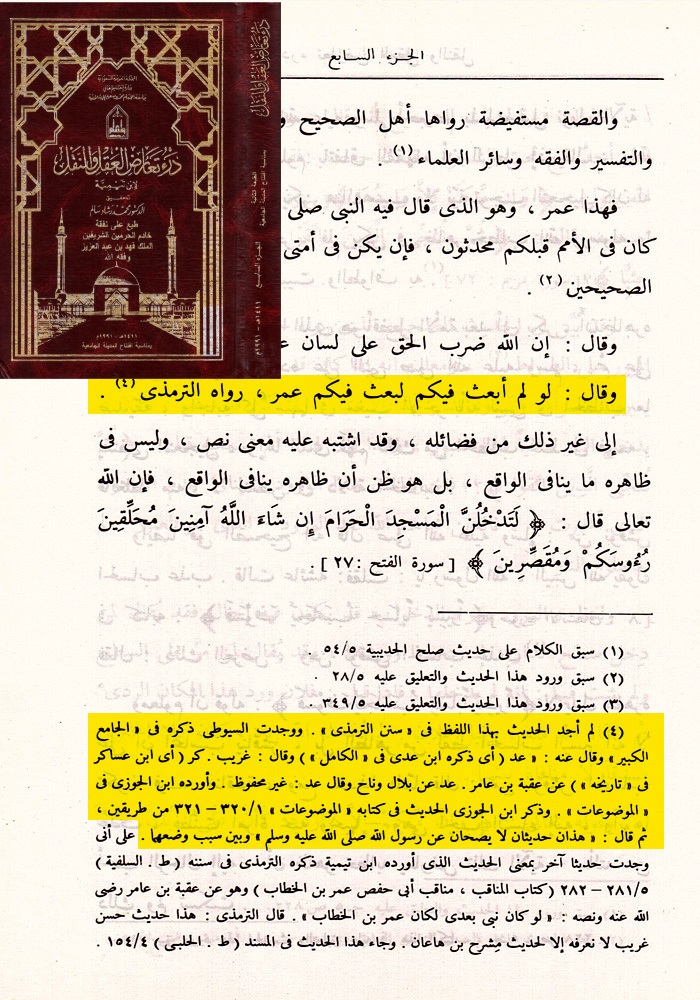 درء تعارض العقل والنقل
لابن تيمية
تحقيق
الدكتور محمد رشاد سالم
طبع على نفقة
خادم الحرمين الشريفين
الملك فهد بن عبد العزيز
وفقه الله
١٤١١هـ - ١٩٩١م
بمناسبة افتتاح المدينة الجامعية
درء تعارض العقل والنقل
الجزء السابع
الجزء السابع
والقصة مستفيضة رواها أهل الصحيح و
والتفسير والفقه وسائر العلماء (١) .
فهذا عمر ، وهو الذى قال فيه النبى صلى
كان فى الأمم قبلكم محدثون ، فإن يكن فى أمتى
الصحيحين (٢) .
وقال : إن الله ضرب الحق على لسان ع
وقال : لو لم أبعث فيكم لبعث فيكم عمر ، رواه الترمذى (٤) .
إلى غير ذلك من فضائله ، وقد اشتبه عليه معنى نص ، وليس فى
ظاهره ما ينافى الواقع ، بل هو ظن أن ظاهره ينافى الواقع ، فإن الله
تعالى قال : ﴿ لَتَدْخُلُنَّ الْمَسْجِدَ الْحَرَامَ إِن شَاءَ اللَّهُ آمِنِينَ مُحَلِّقِينَ
رُءُوسَكُمْ وَمُقَصِّرِينَ ﴾ [ سورة الفتح : ٢٧ ] .
(١) سبق الكلام على حديث صلح الحديبية ٥٤/٥ .
(٢) سبق ورود هذا الحديث والتعليق عليه ٢٨/٥ .
(٣) سبق ورود هذا الحديث والتعليق عليه ٣٤٩/٥ .
(٤) لم أجد الحديث بهذا اللفظ فى « سنن الترمذى » . ووجدت السيوطى ذكره فى « الجامع
الكبير » وقال عنه : « عد ( أى ذكره ابن عدى فى « الكامل » ) وقال : غريب . كر ( أى ابن عساكر
فى « تاريخه » ) عن عقبة بن عامر . عد عن بلال وناح وقال عد : غير محفوظ . وأورده ابن الجوزى فى
« الموضوعات » . وذكر ابن الجوزى الحديث فى كتابه « الموضوعات » ٣٢٠/١ – ٣٢١ من طريقين ،
ثم قال : « هذان حديثان لا يصحان عن رسول الله صلى الله عليه وسلم » وبين سبب وضعها . على أنى
وجدت حديثا آخر بمعنى الحديث الذى أورده ابن تيمية ذكره الترمذى فى سننه ( ط . السلفية )
٢٨١/٥ – ٢٨٢ ( كتاب المناقب ، مناقب أبى حفص عمر بن الخطاب ) وهو عن عقبة بن عامر رضى
الله عنه ونصه : « لو كان نبى بعدى لكان عمر بن الخطاب » . قال الترمذى : هذا حديث حسن
غريب لا نعرفه إلا لحديث مِشرح بن هاعان . وجاء هذا الحديث فى المسند ( ط . الحلبى ) ١٥٤/٤ .